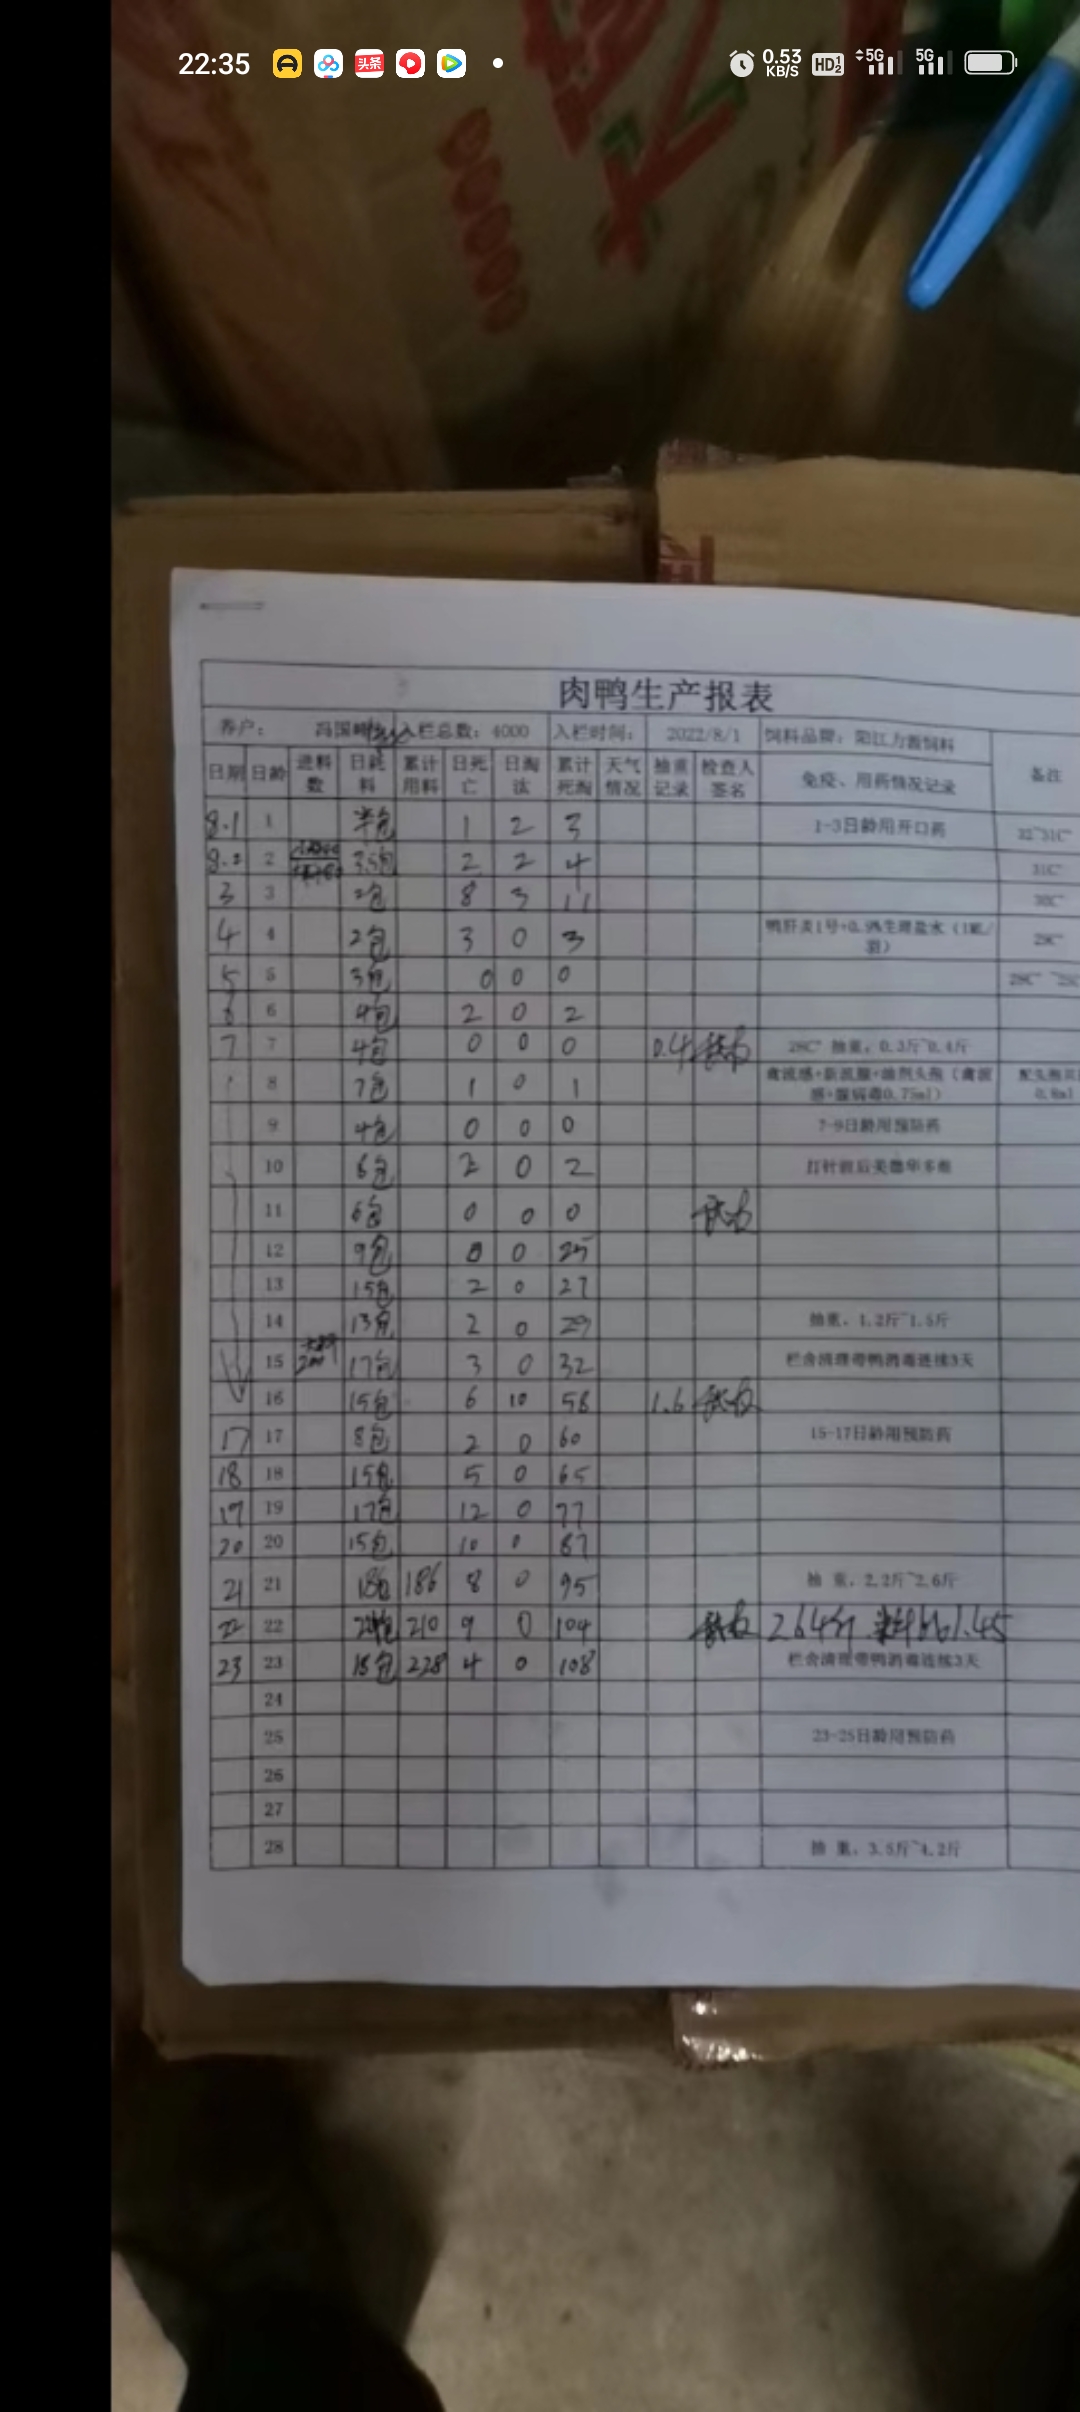 22:35
头条
0.53 KB/S HD 5G 5G
肉鸭生产报表
养户： 冯国 入栏总数：4000 入栏时间： 2022/8/1 饲料品牌：阳江力源饲料
日期 日龄 进料数 日耗料 累计用料 日死亡 日淘汰 累计死淘 天气情况 抽重记录 检查人签名 免疫、用药情况记录 备注
8.1 1 半包 1 2 3 1-3日龄用开口药 32~31C°
8.2 2 3.5包 2 2 4 31C°
3 3 2包 8 3 11 30C°
4 4 2包 3 0 3 鸭肝炎1号+0.9%生理盐水（1ML/羽） 29C°
5 5 3包 0 0 0
6 6 4包 2 0 2
7 7 4包 0 0 0 0.4 28C° 抽重：0.3斤~0.4斤
8 7包 1 0 1 禽流感+新流腺+油剂头孢（禽流感+腺病毒0.75ml）
9 4包 0 0 0 7-9日龄用预防药
10 6包 2 0 2 打针前后美德华多维
11 6包 0 0 0
12 9包 0 0 25
13 15包 2 0 27
14 13包 2 0 29 抽重：1.2斤~1.5斤
15 17包 3 0 32 栏舍清理带鸭消毒连续3天
16 15包 6 10 58 1.6
17 17 8包 2 0 60 15-17日龄用预防药
18 18 15包 5 0 65
19 19 17包 12 0 77
20 20 15包 10 0 87
21 21 18包 186 8 0 95 抽 重：2.2斤~2.6斤
22 22 210 9 0 104 2.64斤 料比1.45
23 23 18包 228 4 0 108 栏舍清理带鸭消毒连续3天
24
25 23-25日龄用预防药
26
27
28 抽 重：3.5斤~4.2斤